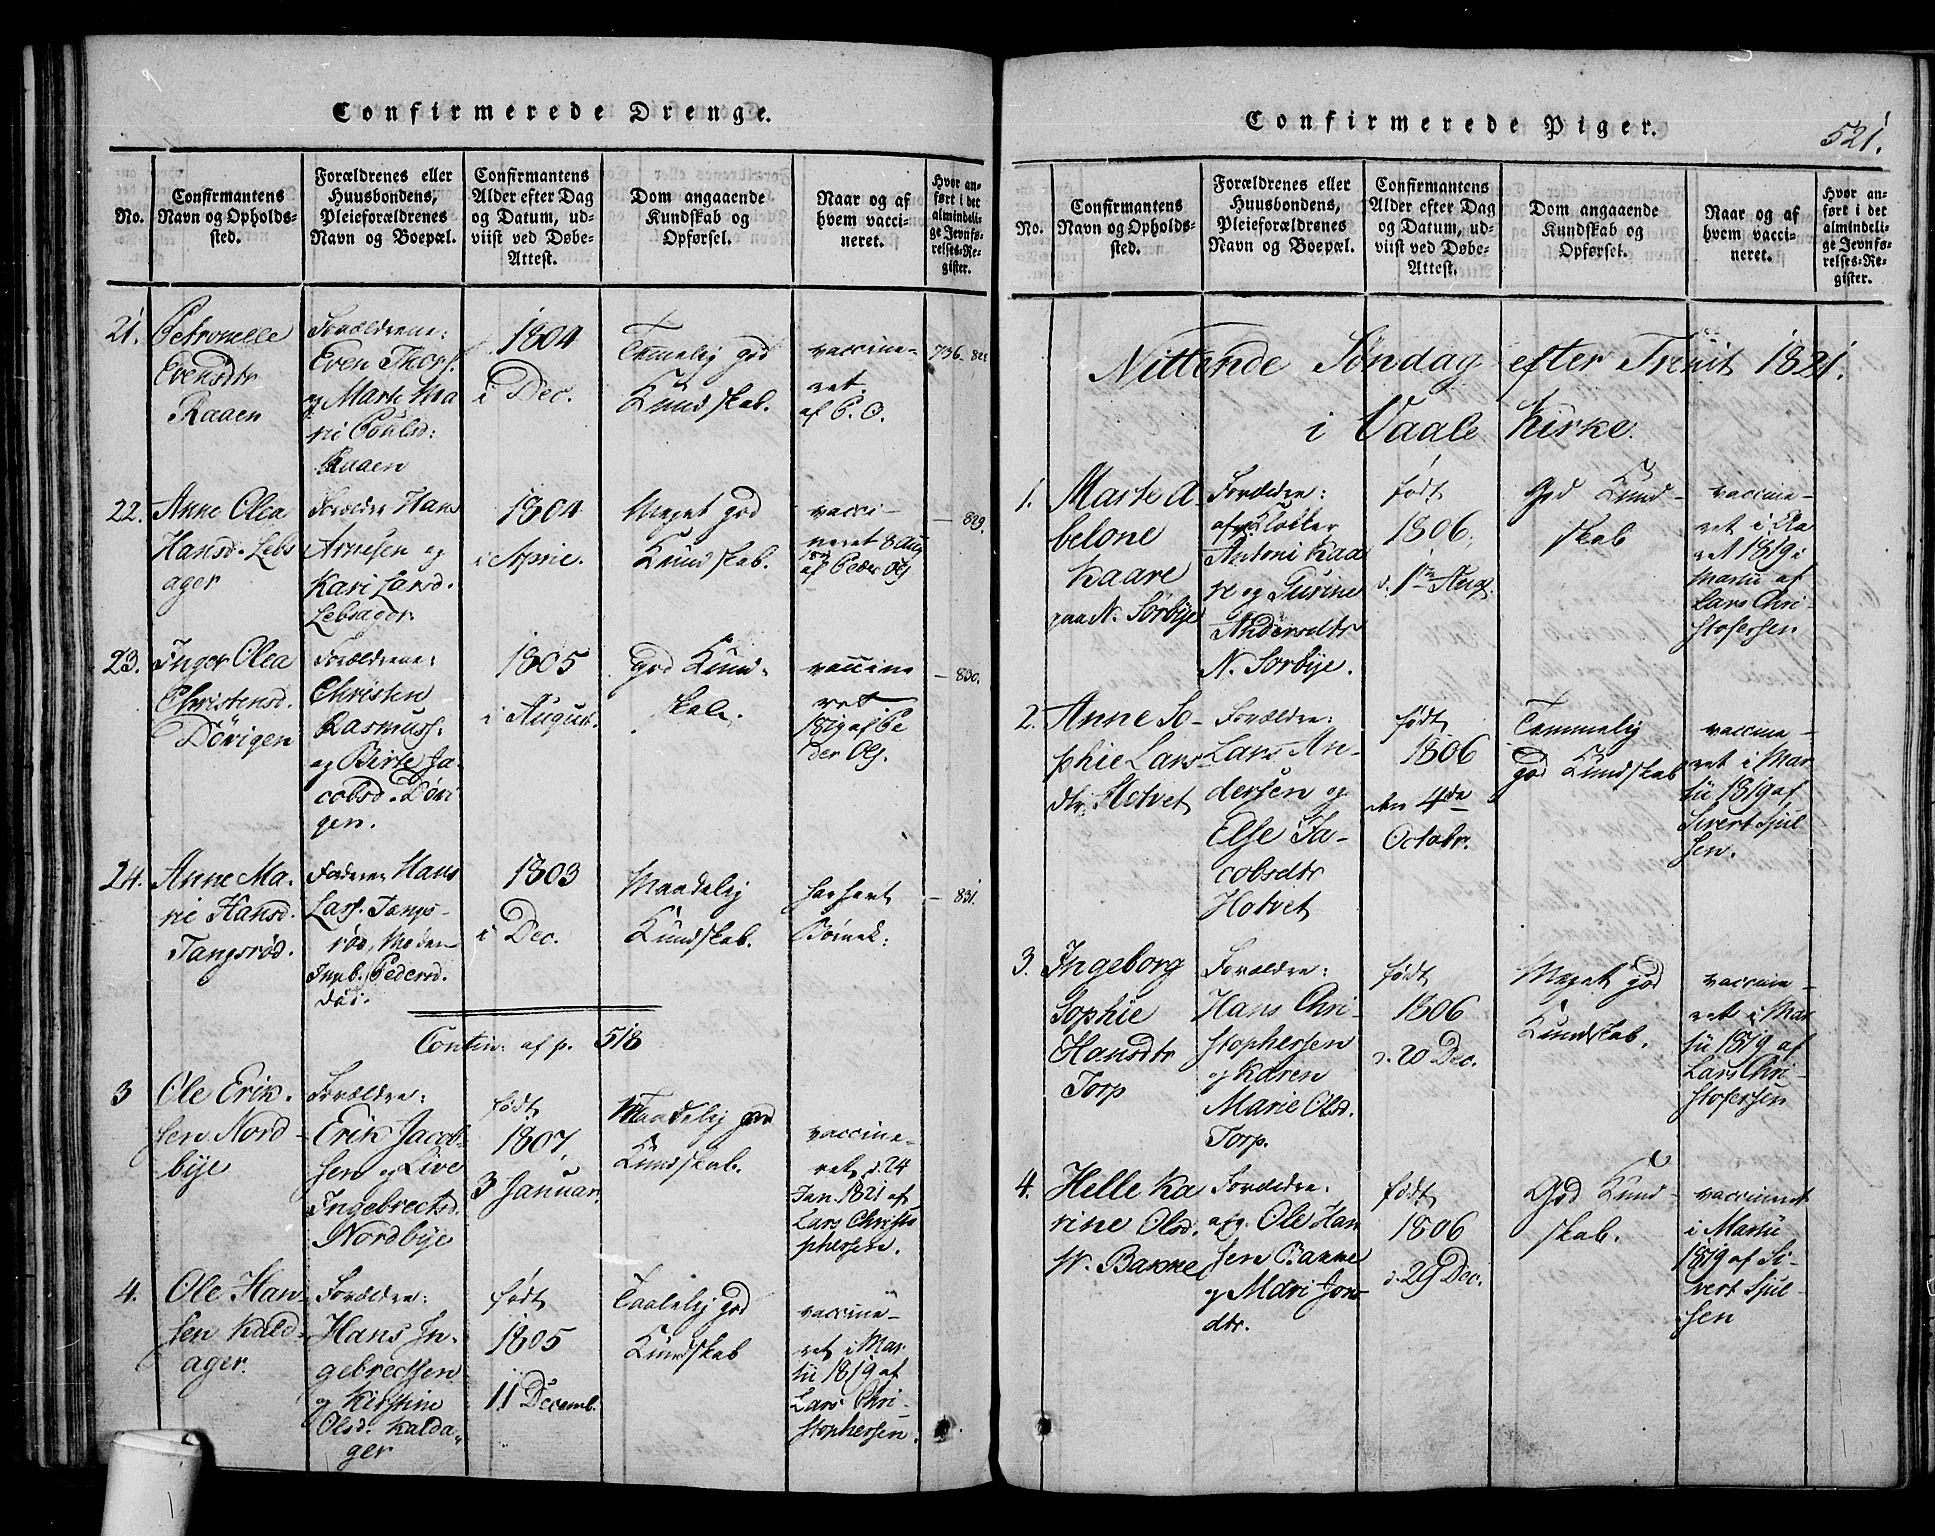 Confirmerede Drenge.
No.
Confirmantens
Navn og Opholds-
sted.
Forældrenes eller
Huusbondens,
Pleieforældrenes
Navn og Boepæl.
Confirmantens
Alder efter Dag
og Datum, ud-
viist ved Døbe-
Attest.
Dom angaaende
Kundskab og
Opførsel.
Naar og af
hvem vacci-
neret.
Hvor an-
ført i det
almindeli-
ge Jevnfø-
relses-Re-
gister.
21.
Petronelle
Evensdtr
Raaen
Forældrene:
Even Thors.
og Marte Ma
ri Poulsd:
Raaen
1804
i Dec.
Temmelig god
Kundskab.
vaccine-
ret.
af P. O.
22.
Anne Olea
Hansd. Lebs
ager
Forælder Hans
Arnesen og
Kari Larsd.
Lebsager.
1804
i Aprie.
Meget god
Kundskab.
vacci-
neret 8 Aug
af Peder Ols
829.
23.
Inger Olea
Christensd.
Dørigen
Forældrene:
Christen
Rasmuss:
og Birte Ja-
cobsd. Døri
gen.
1805
i August.
god Kund-
skab.
vaccine
ret
1819 af Pe
der Ols.
830.
24.
Anne Ma-
ri Hansd.
Tangsrød.
Faderen Hans
Lars. Tangs-
rød, Moderen
Ingb. Pedersd.
død.
1803
i Dec.
Maadelig
Kundskab.
har havt
Børnek:
831.
Contin: af p. 518
3
Ole Erik-
sen Nord-
bye
Forældre:
Erik Jacob-
sen og Live
Ingebrectsd.
Nordbye
født
1807,
3 Januar.
Maadelig god
Kundskab.
vaccine-
ret d. 24
Jan. 1821 af
Lars Christo
phersen.
4.
Ole Han-
sen Kald-
ager.
Forældre:
Hans In-
gebrectsen
og Kirstine
Olsd. Kalda-
ger
født
1805
11 Decemb.
Taalelig god
Kundskab
vaccine-
ret i Mar
tii 1819 af
Lars Chri-
stophersen.
Confirmerede Piger.
521.
No.
Confirmantens
Navn og Opholds-
sted.
Forældrenes eller
Huusbondens,
Pleieforældrenes
Navn og Boepæl.
Confirmantens
Alder efter Dag
og Datum, ud-
viist ved Døbe-
Attest.
Dom angaaende
Kundskab og
Opførsel.
Naar og af
hvem vacci-
neret.
Hvor an-
ført i det
almindeli-
ge Jevnfø-
relses-Re-
gister.
Nittende Søndag efter Trinit 1821.
i Vaale Kirke.
1.
Marte A
belone
Kaare
paa N. Sørbye
Forældre:
Klokker
Antoni Kaa
re og Gurine
Andersdtr
N. Sørbye.
født
1806,
d. 1ste Aug.
God Kund-
skab
vaccine-
ret 1819 i
Martii af
Lars Chri-
stofersen
2.
Anne So-
phie Lars
dtr. Hotvet
Forældre:
Lars An-
dersen og
Else Ja-
cobsdtr
Hotvet
født
1806
den 4de
Octobr.
Temmelig
god Kundskab
vaccine-
ret i Mar
tii 1819 af
Sivert Sjul-
sen.
3.
Ingeborg
Sophie
Hansdtr
Torp
Forældre:
Hans Chri-
stophersen
og Karen
Marie Olsd.
Torp.
født
1806
d. 20 Dec.
Meget god
Kundskab.
vaccine-
ret i Mar
tii 1819 af
Lars Chri-
stofersen
4.
Helle Ka
rine Olsd.
W. Bakke
Forældre:
Ole Han
sen Bakke
og Mari Jons
dtr.
født
1806
d. 29 Dec.
God Kund-
skab.
vaccineret
i Martii
1819 af Si-
vert Sjul-
sen